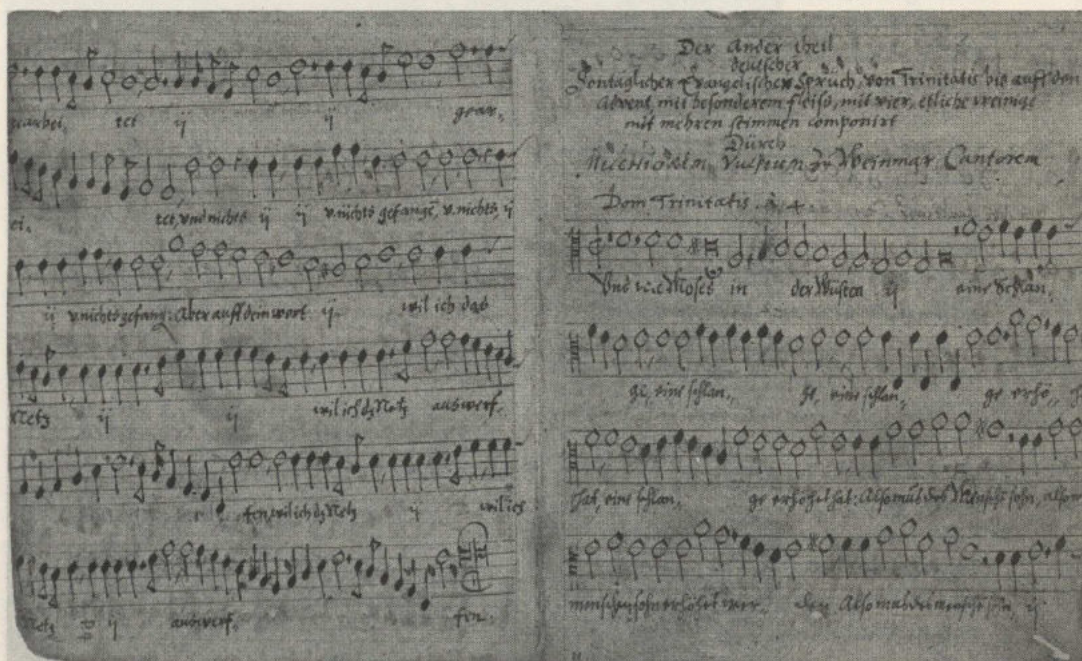 gearbei, tet ij ij gear,
ei, tet, vnd nichts ij ij v. nichts gefangē, v. nichts ij
ij v. nichts gefang: Aber auff dein wort ij. wil ich das
Netz ij ij wil ich dz Netz auswerf,
fen, wil ich dz Netz ij wil ich
Netz ij auswerf, fen.
Der Ander theil
deutscher
Sontaglicher Evangelischer Sprüch, von Trinitatis bis auff den
Advent, mit besonderem fleiss, mit vier, etliche wenige
mit mehren stimmen componirt
Dürch
Melchiorem Vulpium zu Weinmar Cantorem
Dom Trinitatis. à 4.
Und wie Moses in der Wüsten ij eine Schlan,
ge, eine schlan, ge, eine schlan, ge erhö,
hat, eine schlan, ge erhöhet hat: Also mus des Menschē sohn, also m
menschen sohn erhöhet wer, den Also mus des menschē sohn ij